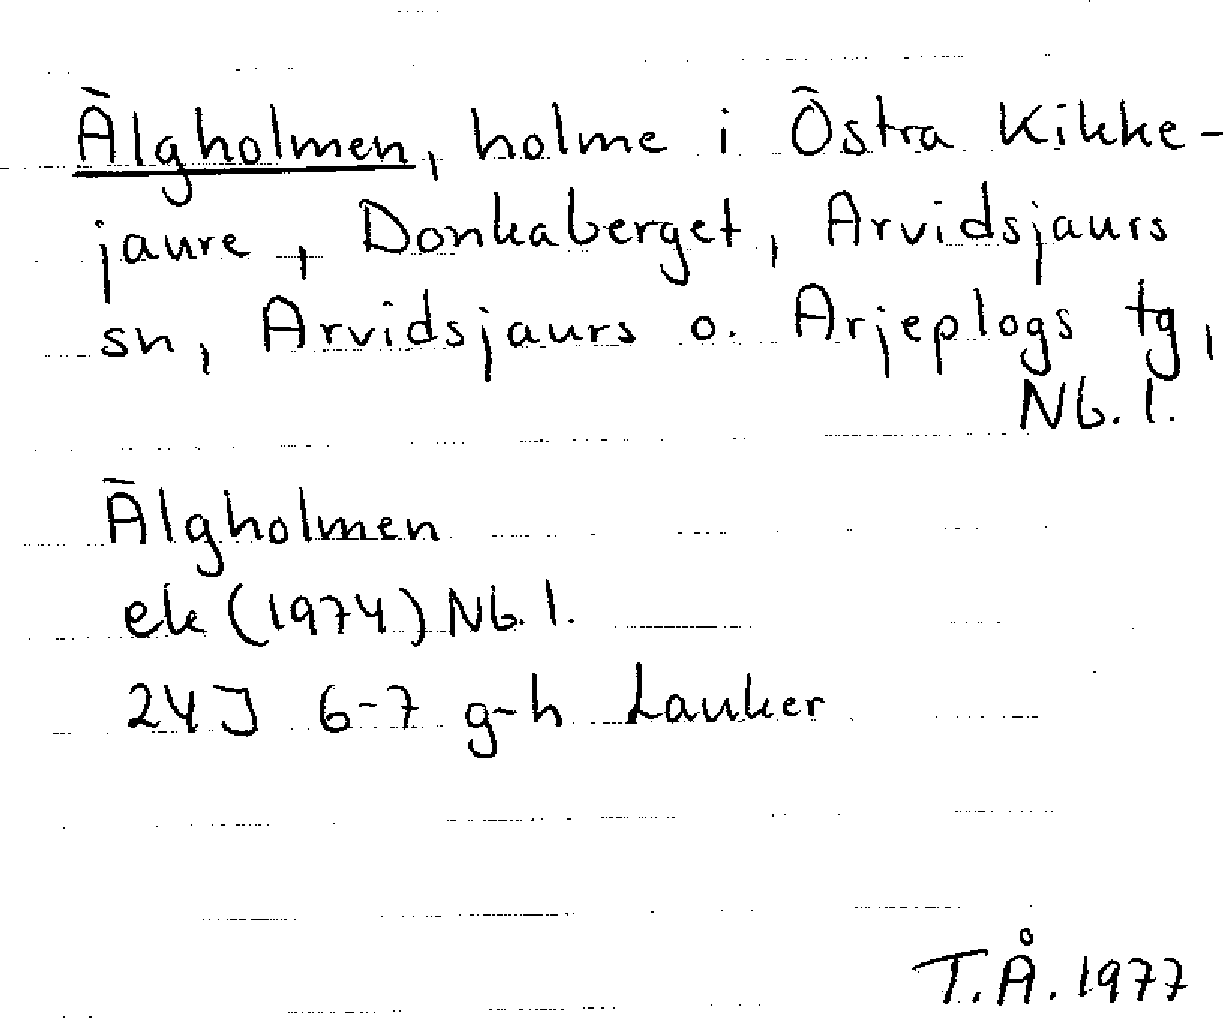 Älgholmen, holme i Östra Kikke-
jaure, Donkaberget, Arvidsjaurs
sn, Arvidsjaurs o. Arjeplogs tg,
Nb. l.
Älgholmen
ek (1974) Nb. l.
24J 6-7 g-h Lauker
T.Å. 1977